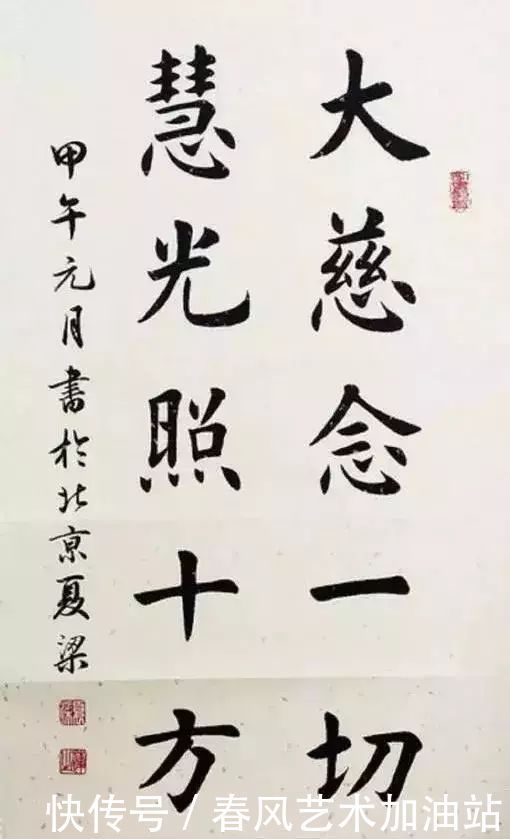 大慈念一切
慧光照十方
甲午元月書於北京夏梁
快传号 / 春风艺术加油站